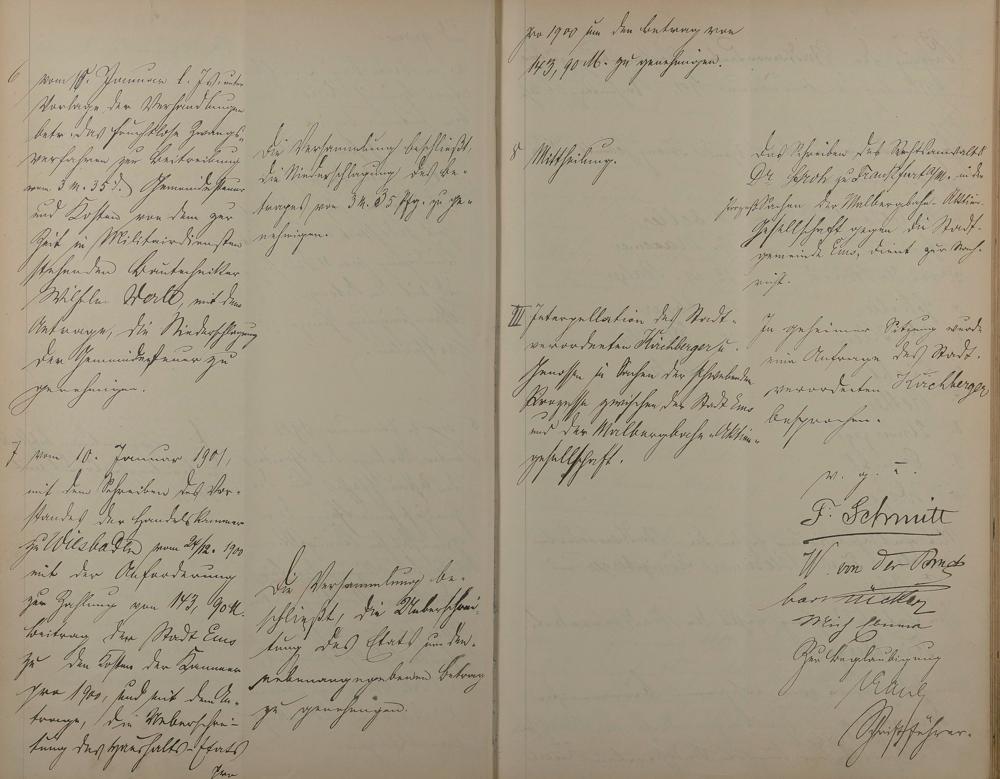 6
vom 10. Januar l. Js. unter
Vorlage der Verhandlungen
betr. das fruchtlose Zwangs-
verfahren zur Beitreibung
von 3 M. 35 d. Gemeindesteuer
und Kosten von dem zur
Zeit in Militairdiensten
stehenden Bautechniker
Wilhelm, mit dem
Antrage, die Niederschlagung
der Gemeindesteuer zu
genehmigen.
Die Versammlung beschließt,
die Niederschlagung des Be-
trages von 3 M. 35 Pfg. zu ge-
nehmigen.
7
vom 10. Januar 1901,
mit dem Schreiben des Vor-
standes der Handelskammer
zu Wiesbaden vom 24/12. 1900
mit der Anforderung
zur Zahlung von 143,90 M.
Beitrag der Stadt Ems
zu den Kosten der Kammer
pro 1900, und mit dem An-
trage, die Ueberschrei-
tung des Haushalts-Etats
pro
Die Versammlung be-
schließt, die Ueberschrei-
tung des Etats um den
nebenangegebenen Betrag
zu genehmigen.
pro 1900 um den Betrag von
143,90 M. zu genehmigen.
8
Mittheilung.
Das Schreiben des Rechtsanwalts
Dr. zu Frankfurt a/M. in der
Prozeßsachen der Malbergbahn-Aktien-
Gesellschaft gegen die Stadt-
gemeinde Ems, dient zur Nach-
richt.
III
Interpellation des Stadt-
verordneten Kirchberger u.
Genossen in Sachen der schwebenden
Prozesse zwischen der Stadt Ems
und der Malbergbahn-Aktien-
gesellschaft.
In geheimer Sitzung wurde
eine Anfrage des Stadt-
verordneten Kirchberger
besprochen.
v. g. u.
F. Schmitt
W. von der
Zur Beglaubigung
Schriftführer.